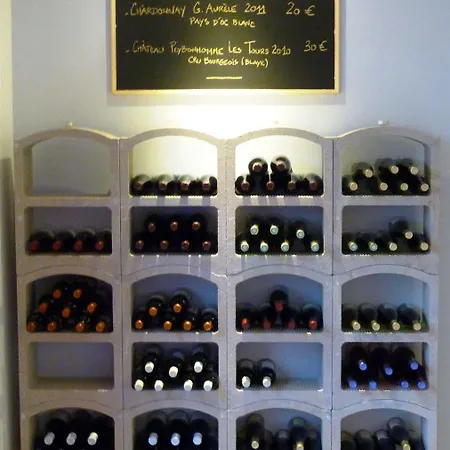 . Chardonnay G. Aurèle 2011 20 €
Pays d'Oc Blanc
. Château Peybonhomme Les Tours 2010 30 €
Cru Bourgeois (Blaye)